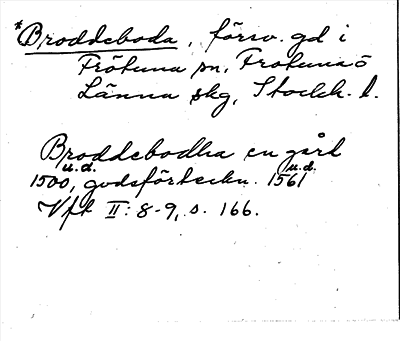 *Broddeboda, försv. gd i
Frötuna sn, Frötuna ö
Länna skg, Stockh. l.
Broddebodha en gård
u.d. u.d.
1500, godsförteckn. 1561
Vft II: 8-9, s. 166.